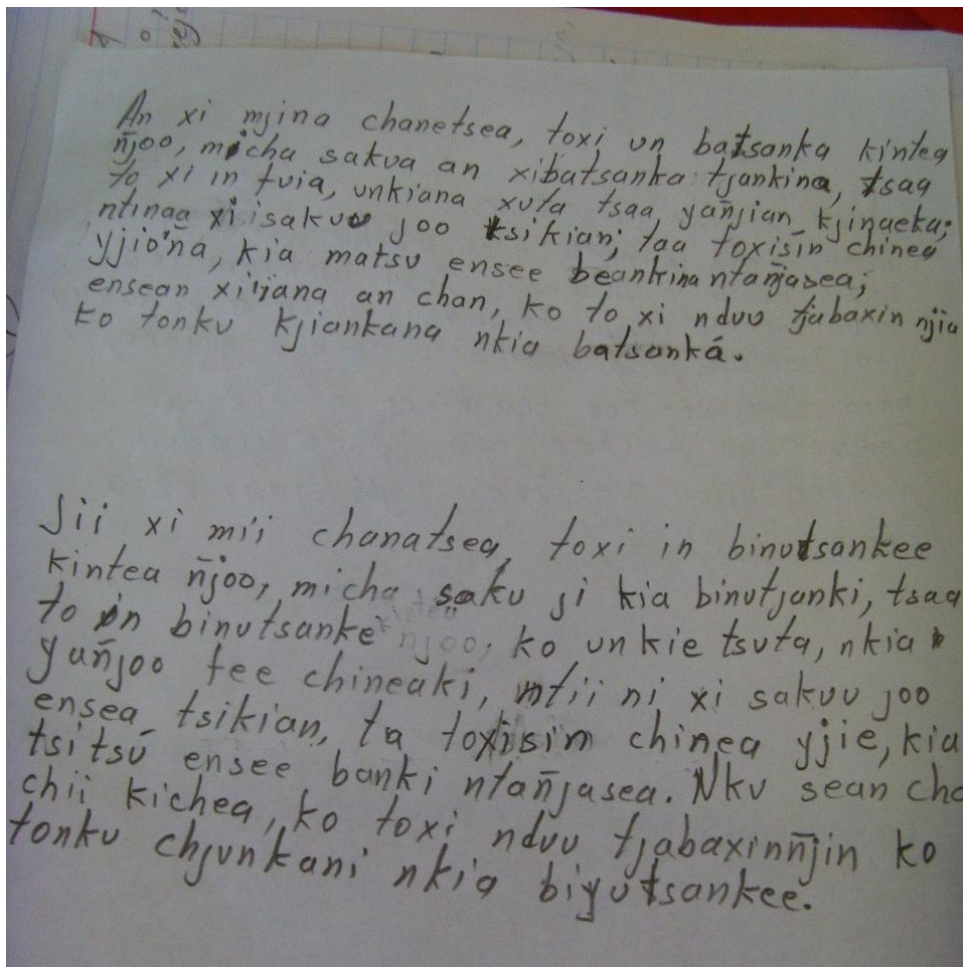 An xi mjina chanetsea, toxi un batsanka kintea
ñjoo, micha sakua an xibatsanka tjankina, tsaa
to xi in tuia, unkiana xuta tsaa, yañjian kjinaeka;
ntinaa xi isakuu joo tsikian; taa toxisin chinea
yjio'ña, kia matsu ensee beankina ntañjasea;
ensean xi'ijana an chan, ko to xi nduu tjabaxin njia
ko tonku kjiankana nkia batsanká.
Jii xi mii chanatsea, toxi in binutsankee
kintea ñjoo, micha saku ji kia binutjanki, tsaa
to in binutsanke njoo, ko unkie tsuta, nkia
yañjoo tee chineaki, ntii ni xi sakuu joo
ensea tsikian, ta toxisin chinea yjie, kia
tsitsú ensee banki ntañjasea. Nku sean cha
chii kichea, ko toxi nduu tjabaxinñjin ko
tonku chjunkani nkia biyutsankee.